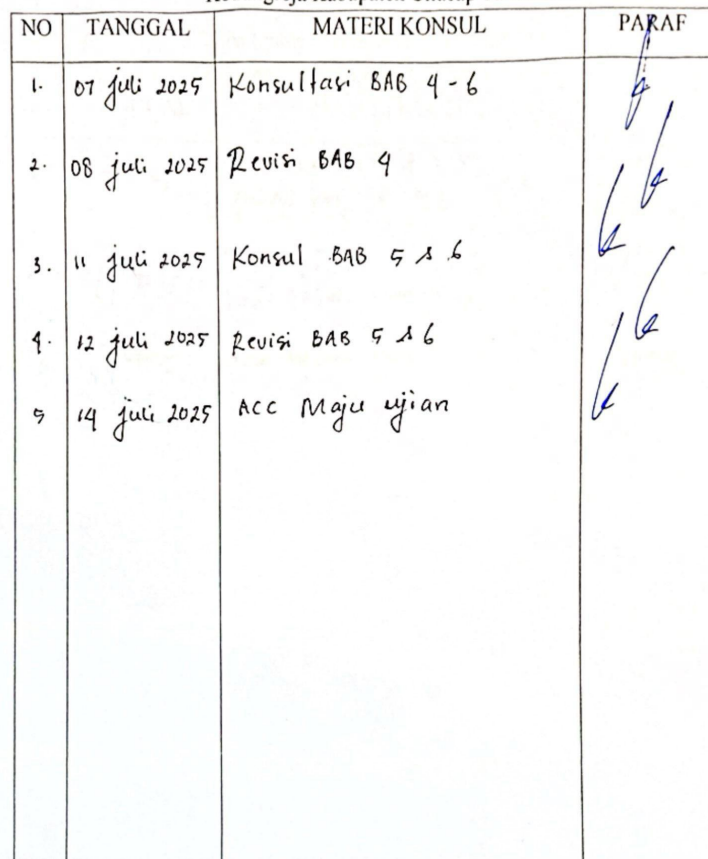 NO TANGGAL MATERI KONSUL PARAF
1. 07 juli 2025 Konsultasi BAB 4-6
2. 08 juli 2025 Revisi BAB 4
3. 11 juli 2025 Konsul BAB 5 & 6
4. 12 juli 2025 Revisi BAB 5 & 6
5 14 juli 2025 ACC Maju ujian